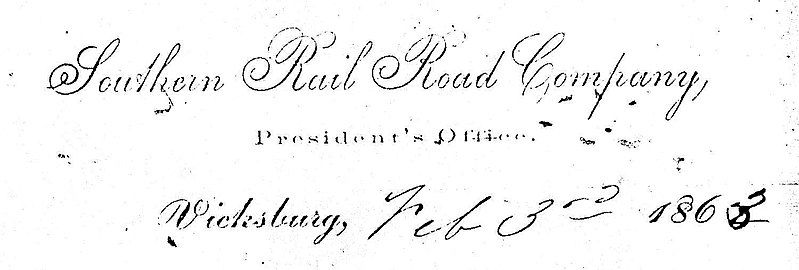 Southern Rail Road Company,
President's Office.
Vicksburg, Feb 3rd 1863